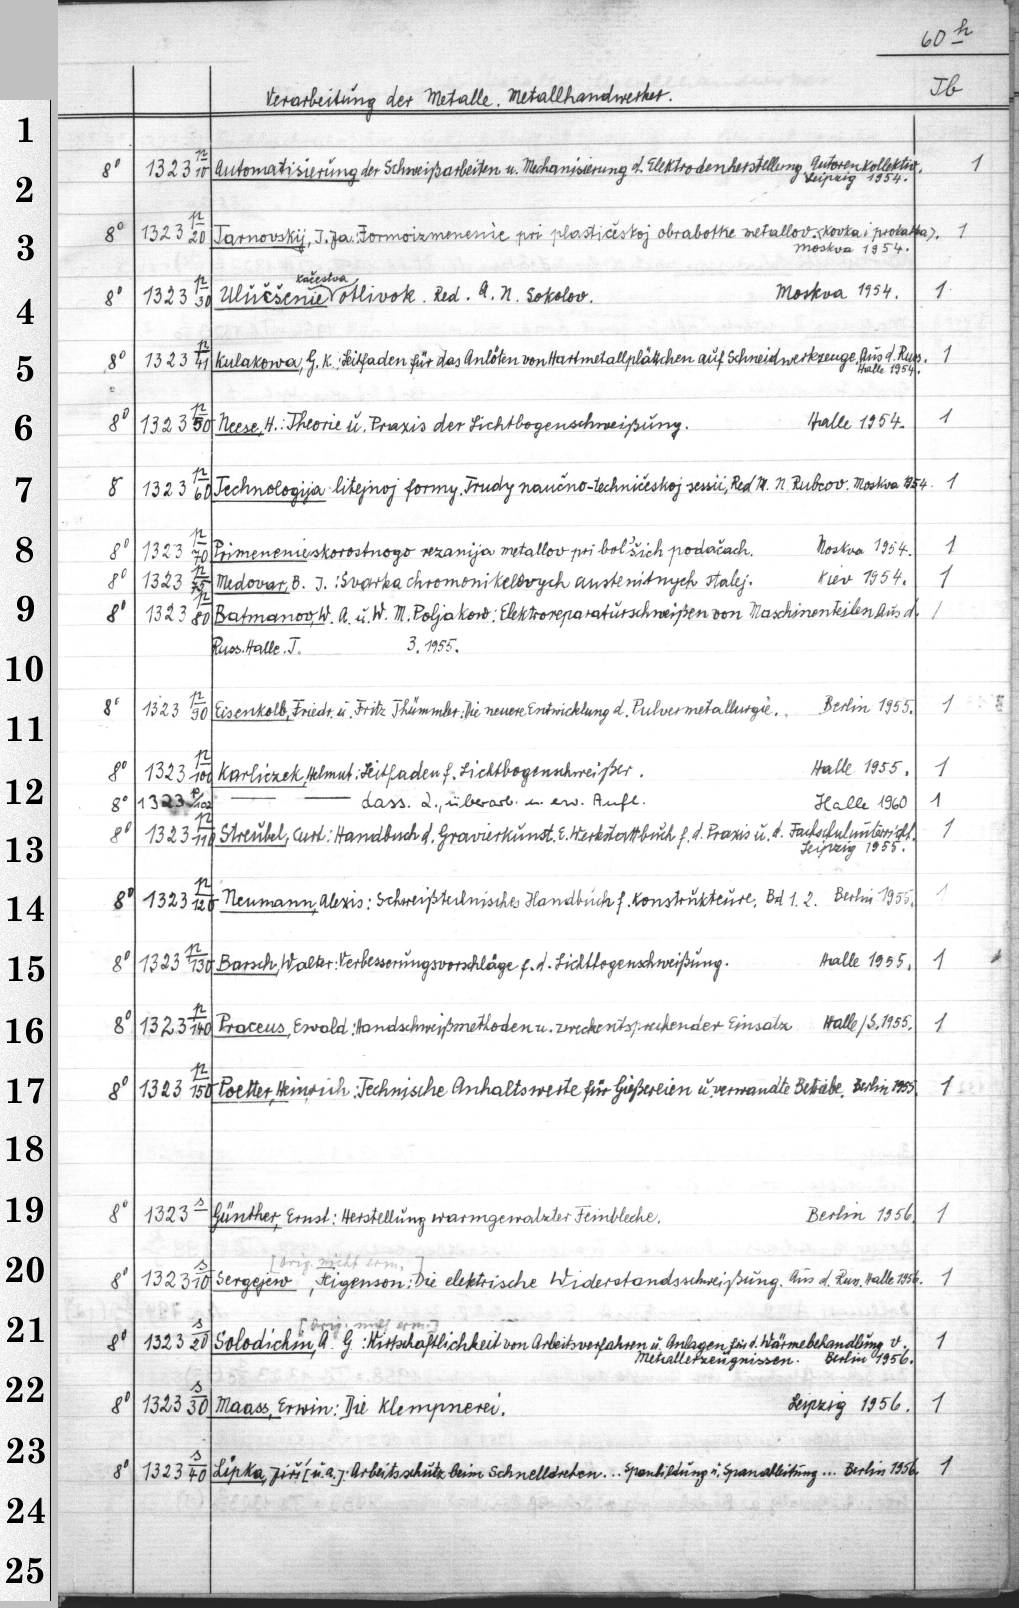 60 h
Verarbeitung der Metalle. Metallhandwerker.
Jb
1
8° 1323 p/10 Automatisierung der Schweißarbeiten u. Mechanisierung d. Elektrodenherstellung Autorenkollektiv. 1
Leipzig 1954.
2
8° 1323 p/20 Tarnovskij, I. Ja: Formoizmenenie pri plastičeskoj obrabotke metallov. (Kovka i prokatka). 1
Moskva 1954.
3
kačestva
8° 1323 p/30 Ulučšenie otlivok. Red. A. N. Sokolov. Moskva 1954. 1
4
8° 1323 p/41 Kulakowa, G. K.: Leitfaden für das Anlöten von Hartmetallplättchen auf Schneidwerkzeuge. Aus d. Russ. 1
Halle 1954.
5
8° 1323 p/50 Neese, H.: Theorie u. Praxis der Lichtbogenschweißung. Halle 1954. 1
6
8 1323 p/60 Technologija litejnoj formy. Trudy naučno-techničeskoj sessii, Red. N. N. Rubcov. Moskva 1954. 1
7
8° 1323 p/70 Primenenie skorostnogo rezanija metallov pri bol'šich podačach. Moskva 1954. 1
8
8° 1323 p/75 Medovar, B. I.: Svarka chromonikelevych austenitnych stalej. Kiev 1954. 1
8° 1323 p/80 Batmanov, W. A. u. W. M. Poljakow: Elektroreparaturschweißen von Maschinenteilen Aus d. 1
9
Russ. Halle. T. 3. 1955.
10
8° 1323 p/90 Eisenkolb, Friedr. u. Fritz Thümmler: Die neuere Entwicklung d. Pulvermetallurgie. Berlin 1955. 1
11
8° 1323 p/100 Karliczek, Helmut: Leitfaden f. Lichtbogenschweißer. Halle 1955. 1
12
8° 1323 p/102 — — dass. 2., überarb. u. erw. Aufl. Halle 1960 1
8° 1323 p/110 Streubel, Curt: Handbuch d. Gravierkunst. E. Werkstattbuch f. d. Praxis u. d. Fachschulunterricht. 1
13
Leipzig 1955.
8° 1323 p/120 Neumann, Alexis: Schweißtechnisches Handbuch f. Konstrukteure. Bd 1. 2. Berlin 1955. 1
14
8° 1323 p/130 Barsch, Walter: Verbesserungsvorschläge f. d. Lichtbogenschweißung. Halle 1955. 1
15
8° 1323 p/140 Praceus, Ewald: Handschweißmethoden u. zweckentsprechender Einsatz Halle/S. 1955. 1
16
8° 1323 p/150 Poetter, Heinrich: Technische Anhaltswerte für Gießereien u. verwandte Betriebe. Berlin 1955. 1
17
18
8° 1323 s Günther, Ernst: Herstellung warmgewalzter Feinbleche. Berlin 1956. 1
19
[Orig. nicht erm.]
20
8° 1323 s/10 Sergejew, Aigenson: Die elektrische Widerstandsschweißung. Aus d. Russ. Halle 1956. 1
[Orig. nicht erm.]
21
8° 1323 s/20 Solodichin, A. G.: Wirtschaftlichkeit von Arbeitsverfahren u. Anlagen für d. Wärmebehandlung v. 1
Metallerzeugnissen. Berlin 1956.
22
8° 1323 s/30 Maass, Erwin: Die Klempnerei. Leipzig 1956. 1
23
8° 1323 s/40 Lipka, Jiří [u.a.]: Arbeitsschutz beim Schnelldrehen... Spanbildung u. Spanableitung... Berlin 1956. 1
24
25